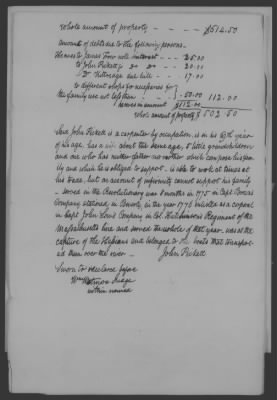 whole amount of property - - - $614.50
Amount of debts due to the following persons.
than as to James Town with interest - - 25.00
to John Pickett Jr Do Do - - 20.00
Dr Kittredge due bill - - 17.00
to different shops for necessaries for }
the family use not less than - - } - 50.00 112.00
names in amount $112.00
whole amount of property $502.50
Said John Pickett is a carpenter by occupation, is in his year
of his age has a wife about the same age, 2 little grandchildren
and one who has neither father nor mother which compose his fam-
ily and which he is obliged to support. is able to work at times at
his trade, but on account of infirmity cannot support his family
- served in the Revolutionary war 8 months in 1775 in Capt
Company stationed in Beverly, in the year 1776 enlisted as a corporal
in Capt John Lows Company in Col. Hutchinsons Regiment of the
Massachusetts line and served the whole of that year. was at the
capture of the Hessians and belonged to the boats that transport-
ed them over the river -
John Pickett
Sworn to & declared before
Judge
within named